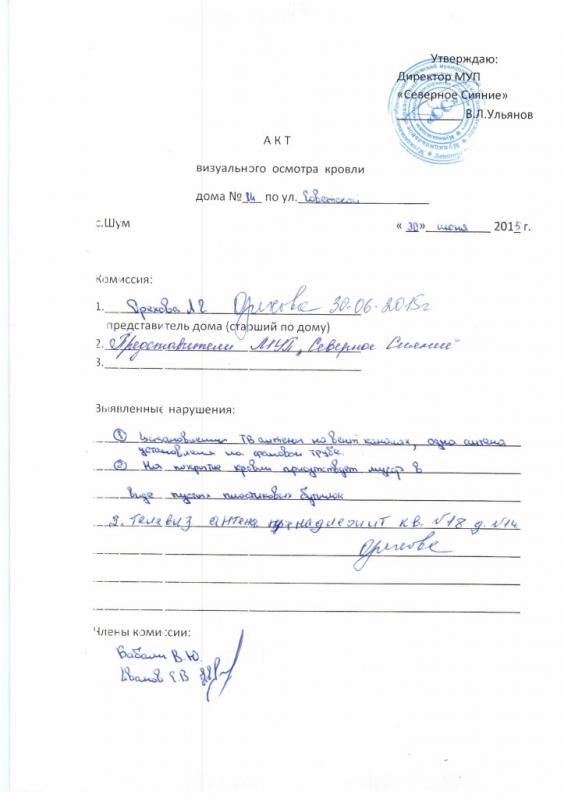 Утверждаю:
Директор МУП
«Северное Сияние»
В.Л.Ульянов
«СС»
А К Т
визуального осмотра кровли
дома № 14 по ул. Советской
с.Шум « 30 » июня 2015 г.
Комиссия:
1. Орехова Л Г Орехова 30.06.2015г
представитель дома (старший по дому)
2. Представители МУП „Северное Сияние"
3.
Выявленные нарушения:
① Установлены ТВ антенны на вент каналах, одна антена
установлена на фановой трубе.
② На покрытие кровли присутствует мусор в
виде пустых пластиковых бутылок
3. Телевиз антена принадлежит кв. №18 д. №14
Орехова
Члены комиссии:
В.Ю.
Иванов Е.В